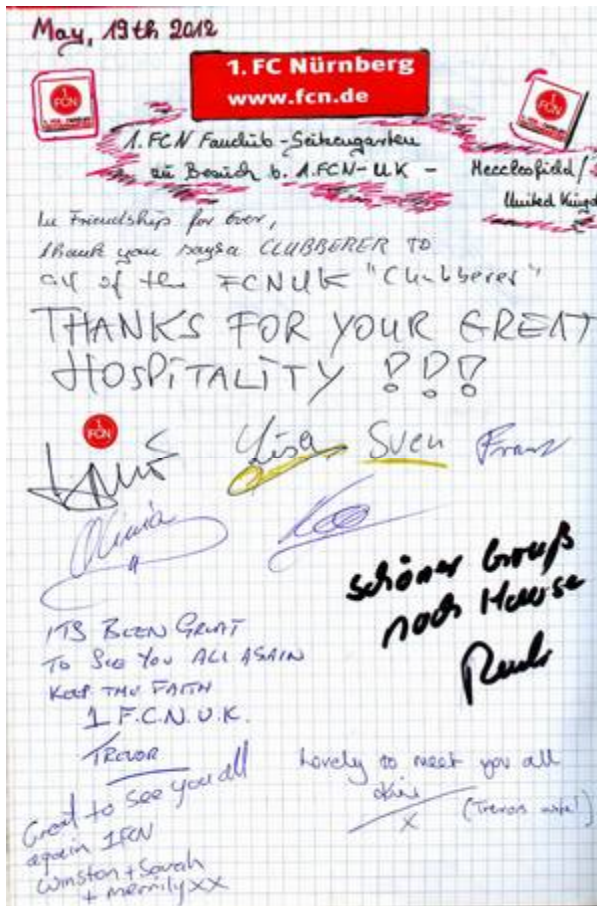 May, 19th 2012
1. FC Nürnberg
www.fcn.de
1. FCN
1. FCN
1. FCN Fanclub - Seitengarten
zu Besuch b. 1.FCN - UK -
Mecclesfield/
United Kingd
In Friendship for ever,
thank you says a CLUBBERER TO
all of the FCNUK "Clubberer"
THANKS FOR YOUR GREAT
HOSPiTALiTY !!!
1. FCN
Lisa Sven Franz
Olivia
schöner Gruß
nach Hause
ITS BEEN GREAT
TO SEE YOU ALL AGAIN
KEEP THE FAITH
1 F.C.N.U.K.
TREVOR
Lovely to meet you all
x (Trevors wife!)
Great to see you all
again 1FCN
Winston + Sarah
+ merrily xx